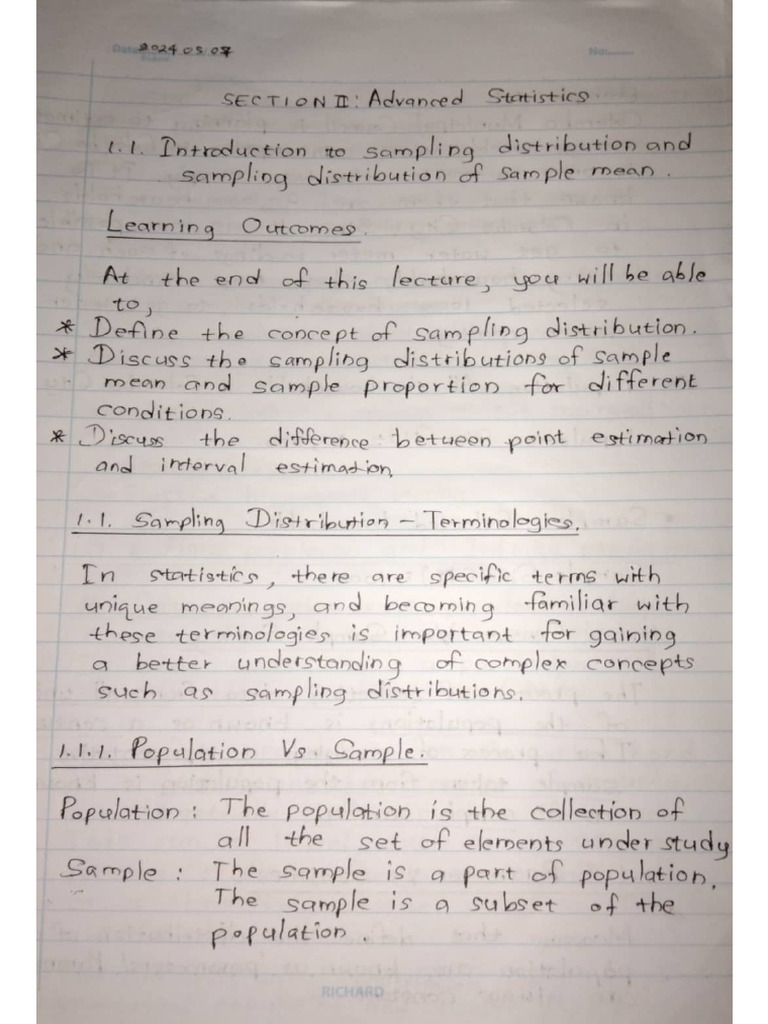 Date 2024.05.07
No:
SECTION II: Advanced Statistics
1.1. Introduction to sampling distribution and
sampling distribution of sample mean.
Learning Outcomes.
At the end of this lecture, you will be able
to,
* Define the concept of sampling distribution.
* Discuss the sampling distributions of sample
mean and sample proportion for different
conditions.
* Discuss the difference between point estimation
and interval estimation.
1.1. Sampling Distribution - Terminologies.
In statistics, there are specific terms with
unique meanings, and becoming familiar with
these terminologies is important for gaining
a better understanding of complex concepts
such as sampling distributions.
1.1.1. Population Vs Sample.
Population: The population is the collection of
all the set of elements under study
Sample: The sample is a part of population.
The sample is a subset of the
population.
RICHARD